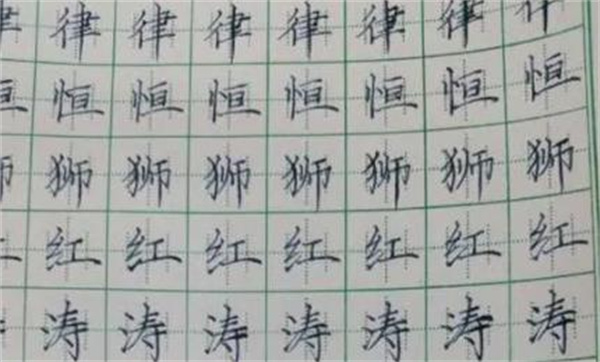 律 律 律 律 律 律 律 律
恒 恒 恒 恒 恒 恒 恒 恒
狮 狮 狮 狮 狮 狮 狮 狮
红 红 红 红 红 红 红
涛 涛 涛 涛 涛 涛 涛